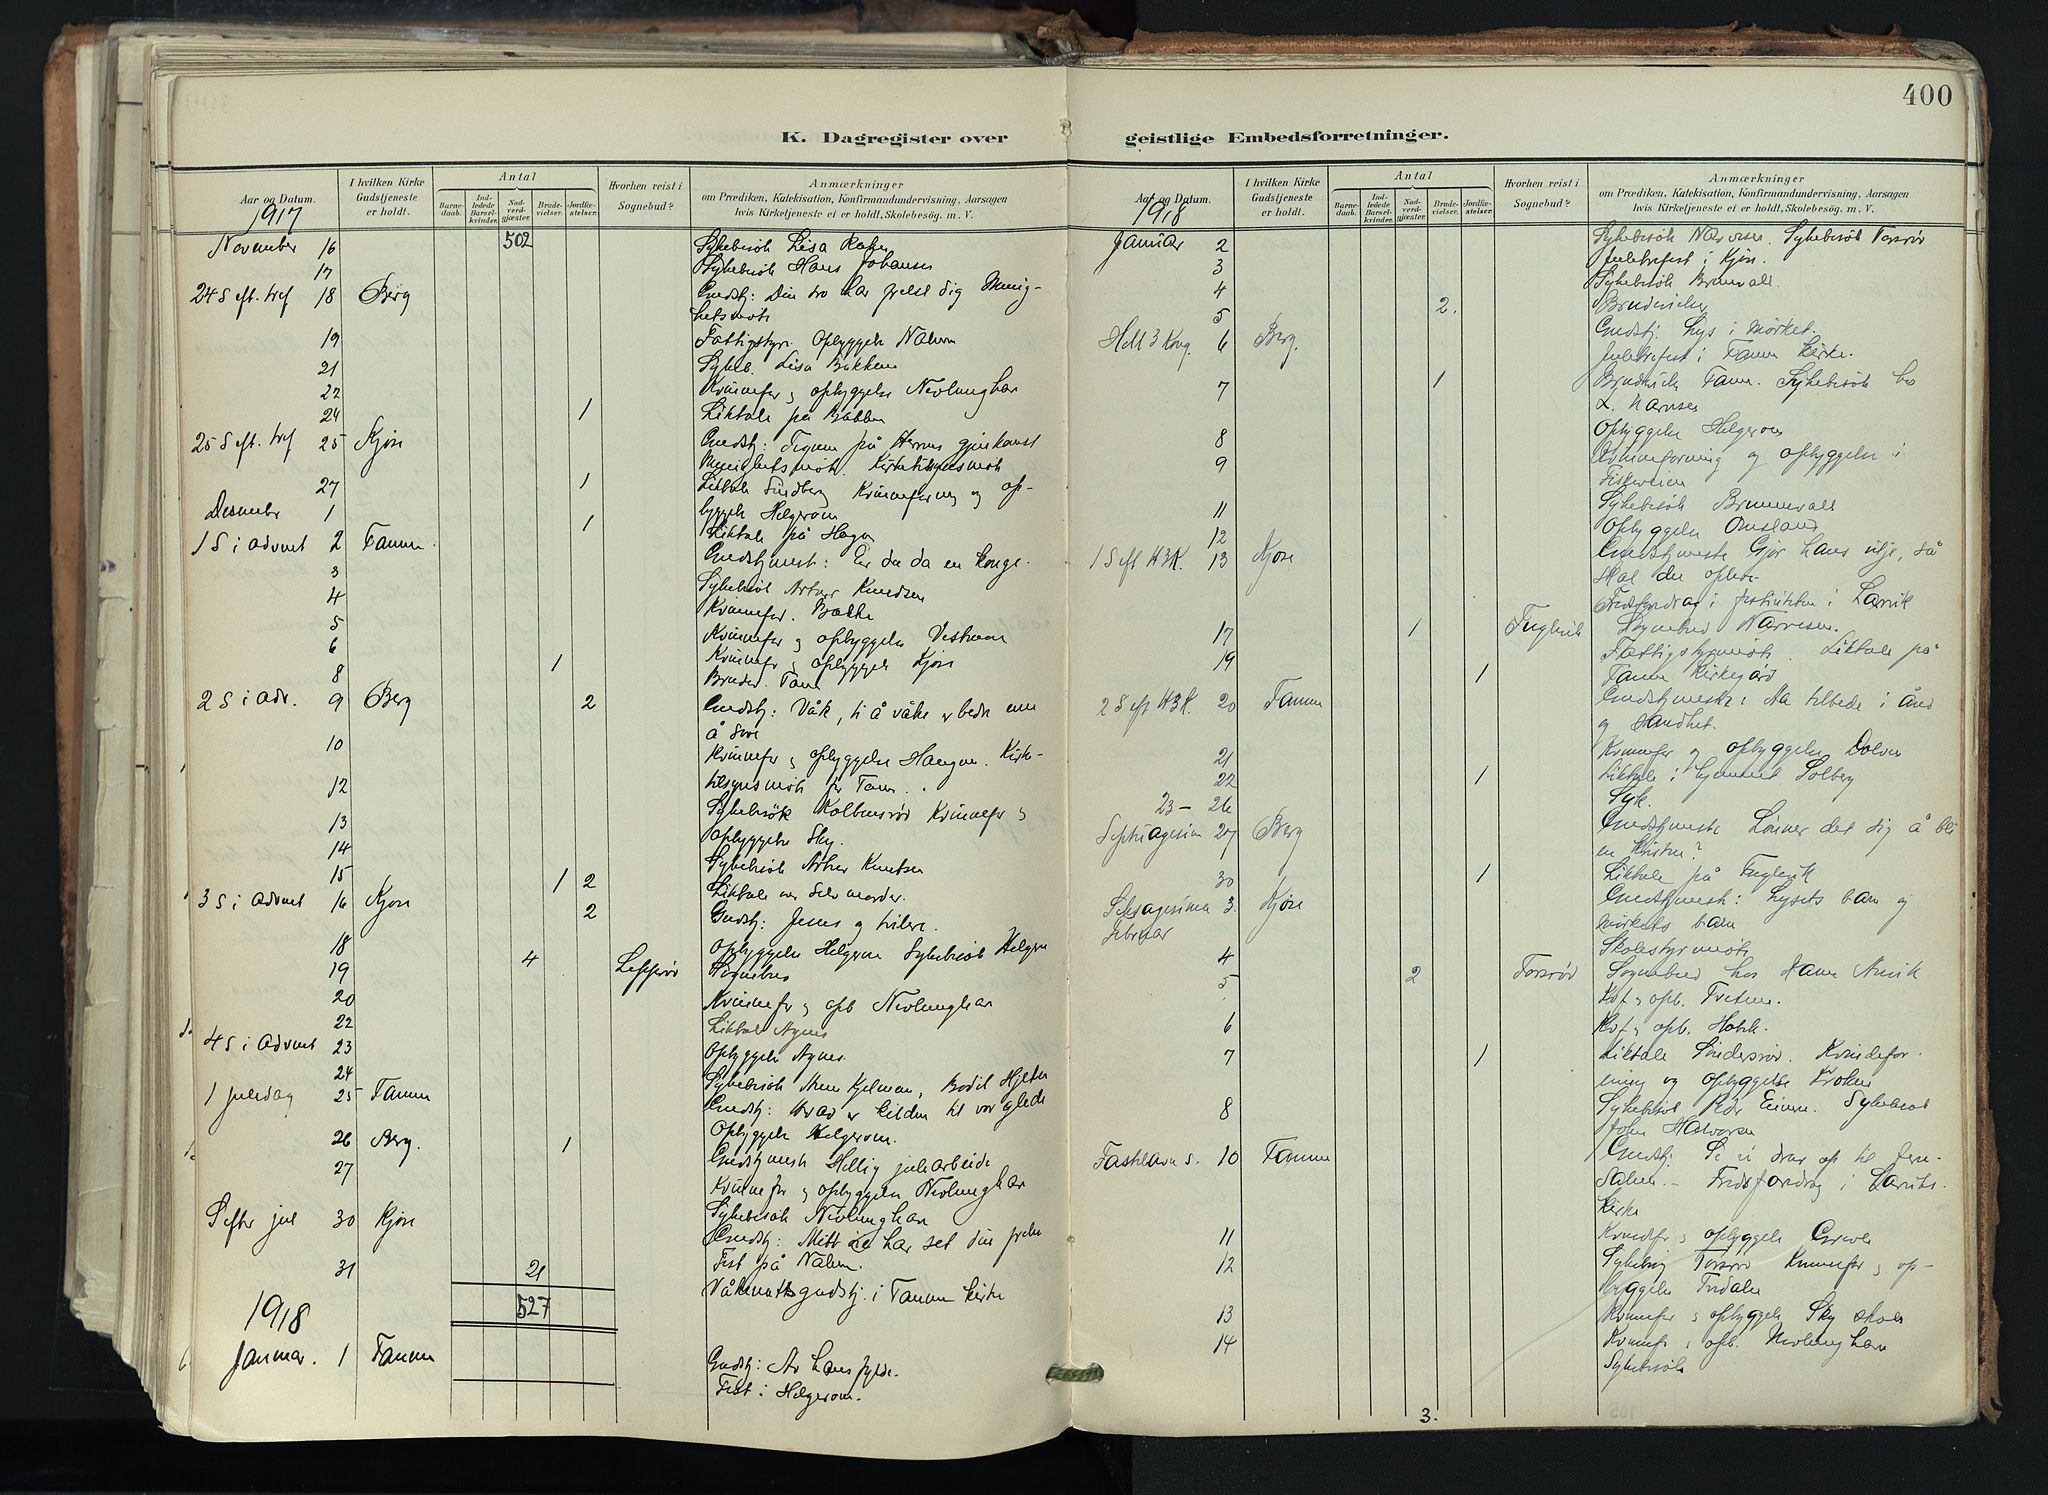 400
K. Dagregister over
geistlige Embedsforretninger.
Aar og Datum.
I hvilken Kirke Gudstjeneste er holdt.
Antal
Barnedaab.
Indledede Barselkvinder.
Nadverdgjæster.
Brudevielser.
Jordfæstelser.
Hvorhen reist i Sognebud?
Anmærkninger
om Prædiken, Katekisation, Konfirmandundervisning, Aarsagen
hvis Kirketjeneste ei er holdt, Skolebesøg. m. V.
1917
November 16 502 Sykebesök Lisa
17 Sykebesök Hans Johansen
24 S eft. tref 18 Berg Gudstj: Din tro har frelst dig Menig-
hetsmöte
19 Fattigstyr. Opbyggelse Nalum
21 Sykeb. Lisa Bakken
22 Kvinnefor og opbyggelse Nevlunghavn
24 1 Liktale på
25 S eft. tref 25 Kjose Gudstj: Tegnene på Herrens gjenkomst
Menighetsmöte. Kirketilsynsmöte
27 1 Liktale Lindberg Kvinneforening og op-
byggelse Helgeroa
Desember 1 1 Liktale på
1 S i advent 2 Tanum. Gudstjeneste: Er du da en konge.
3 Sykebesök Artur Knudsen
4 Kvinnefor. Bakke
5 Kvinnefor og opbyggelse
6 Kvinnefor og opbyggelse Kjose
8 1 Brudev. Tanum
2 S i adv. 9 Berg 2 Gudstj: Våk, ti å våke er bedre enn
å sove
10 Kvinnefor og opbyggelse Kirke-
tilsynsmöte for Tanum.
12 Sykebesök Kolbensrød Kvinnefor og
13 opbyggelse Sky.
14 Sykebesök Artur Knutsen
15 1 2 Liktale over
3 S i advent 16 Kjose 2 Gudstj: Jesus og tvilere.
18 Opbyggelse Helgeroa Sykebesök Helgeroa
19 4 Sognebud
20 Kvinnefor og opb Nevlunghavn
22 Liktale Agnes
4 S i advent 23 Opbyggelse Agnes.
24 Sykebesök Bodil
1 juledag 25 Tanum Gudstj: Hvad er kilden til vor glede
Opbyggelse Helgeroa.
26 Berg. 1 Gudstjeneste Hellig julearbeide
27 Kvinnefor og opbyggelse Nevlunghavn
S efter jul 30 Kjose Sykebesök Nevlunghavn
Gudstj: Mitt öie har set din frelse
31 21 Fest på Nalum.
527 Våkenattsgudstj. i Tanum kirke
1918
Januar. 1 Tanum Gudstj: Av hans fylde.
Fest i Helgeroa.
Aar og Datum.
I hvilken Kirke Gudstjeneste er holdt.
Antal
Barnedaab.
Indledede Barselkvinder.
Nadverdgjæster.
Brudevielser.
Jordfæstelser.
Hvorhen reist i Sognebud?
Anmærkninger
om Prædiken, Katekisation, Konfirmandundervisning, Aarsagen
hvis Kirketjeneste ei er holdt, Skolebesøg. m. V.
1918
Januar 2 Sykebesök Narvesen. Sykebesök Torsrød
3 Juletrefest i Kjose.
4 Sykebesök Brunvall.
5 2. Brudevielse
Hell 3 Kong. 6 Berg. Gudstj. Lys i mørket.
Juletrefest i Tanum kirke.
7 1 Brudevielse Tanum. Sykebesök hos
L. Narvesen
8 Opbyggelse Helgeroa
9 Kvinneforening og opbyggelse i
11 Sykebesök Brunnvall
12 Opbyggelse Omsland
1 S eft H3K. 13 Kjose Gudstjeneste Gjør hans vilje, så
skal du opleve
Fredsforedrag i festiviteten i Larvik
17 1 Fuglevik Sognebud Narvesen.
19 Fattigstyrmöte. Liktale på
1 Tanum kirkegård
2 S eft H3K. 20 Tanum Gudstjeneste: Aa tilbede i ånd
og sandhet.
21 Kvinnefor og opbyggelse Dolven
22 1 Liktale i Solberg
23 – 26 Syk.
Septuagesima 27 Berg Gudstjeneste Lönner det sig å bli
en kristen?
30 1 Liktale på Fuglevik
Seksagesima 3. Kjose Gudstjeneste: Lysets barn og
Februar mörkets barn
4 Skolestyrmöte
5 2 Torsrød Sognebud hos
Kvf og opb.
6 Kvf og opb.
7 1 Liktale Søndersrød. Kvindefor-
ening og opbyggelse Kroken
8 Sykebesök Sykebesök
John Halvorsen
Fastelavns s. 10 Tanum Gudstj. Se vi drar op til Jeru-
salem – Fredsforedrag i Larviks
kirke
11 Kvindefor og opbyggelse
12 Torsrød Kvinnefor og op-
byggelse
13 Kvinnefor og opbyggelse Sky skole
14 Kvinnefor og opb. Nevlunghavn
Sykebesök
3.